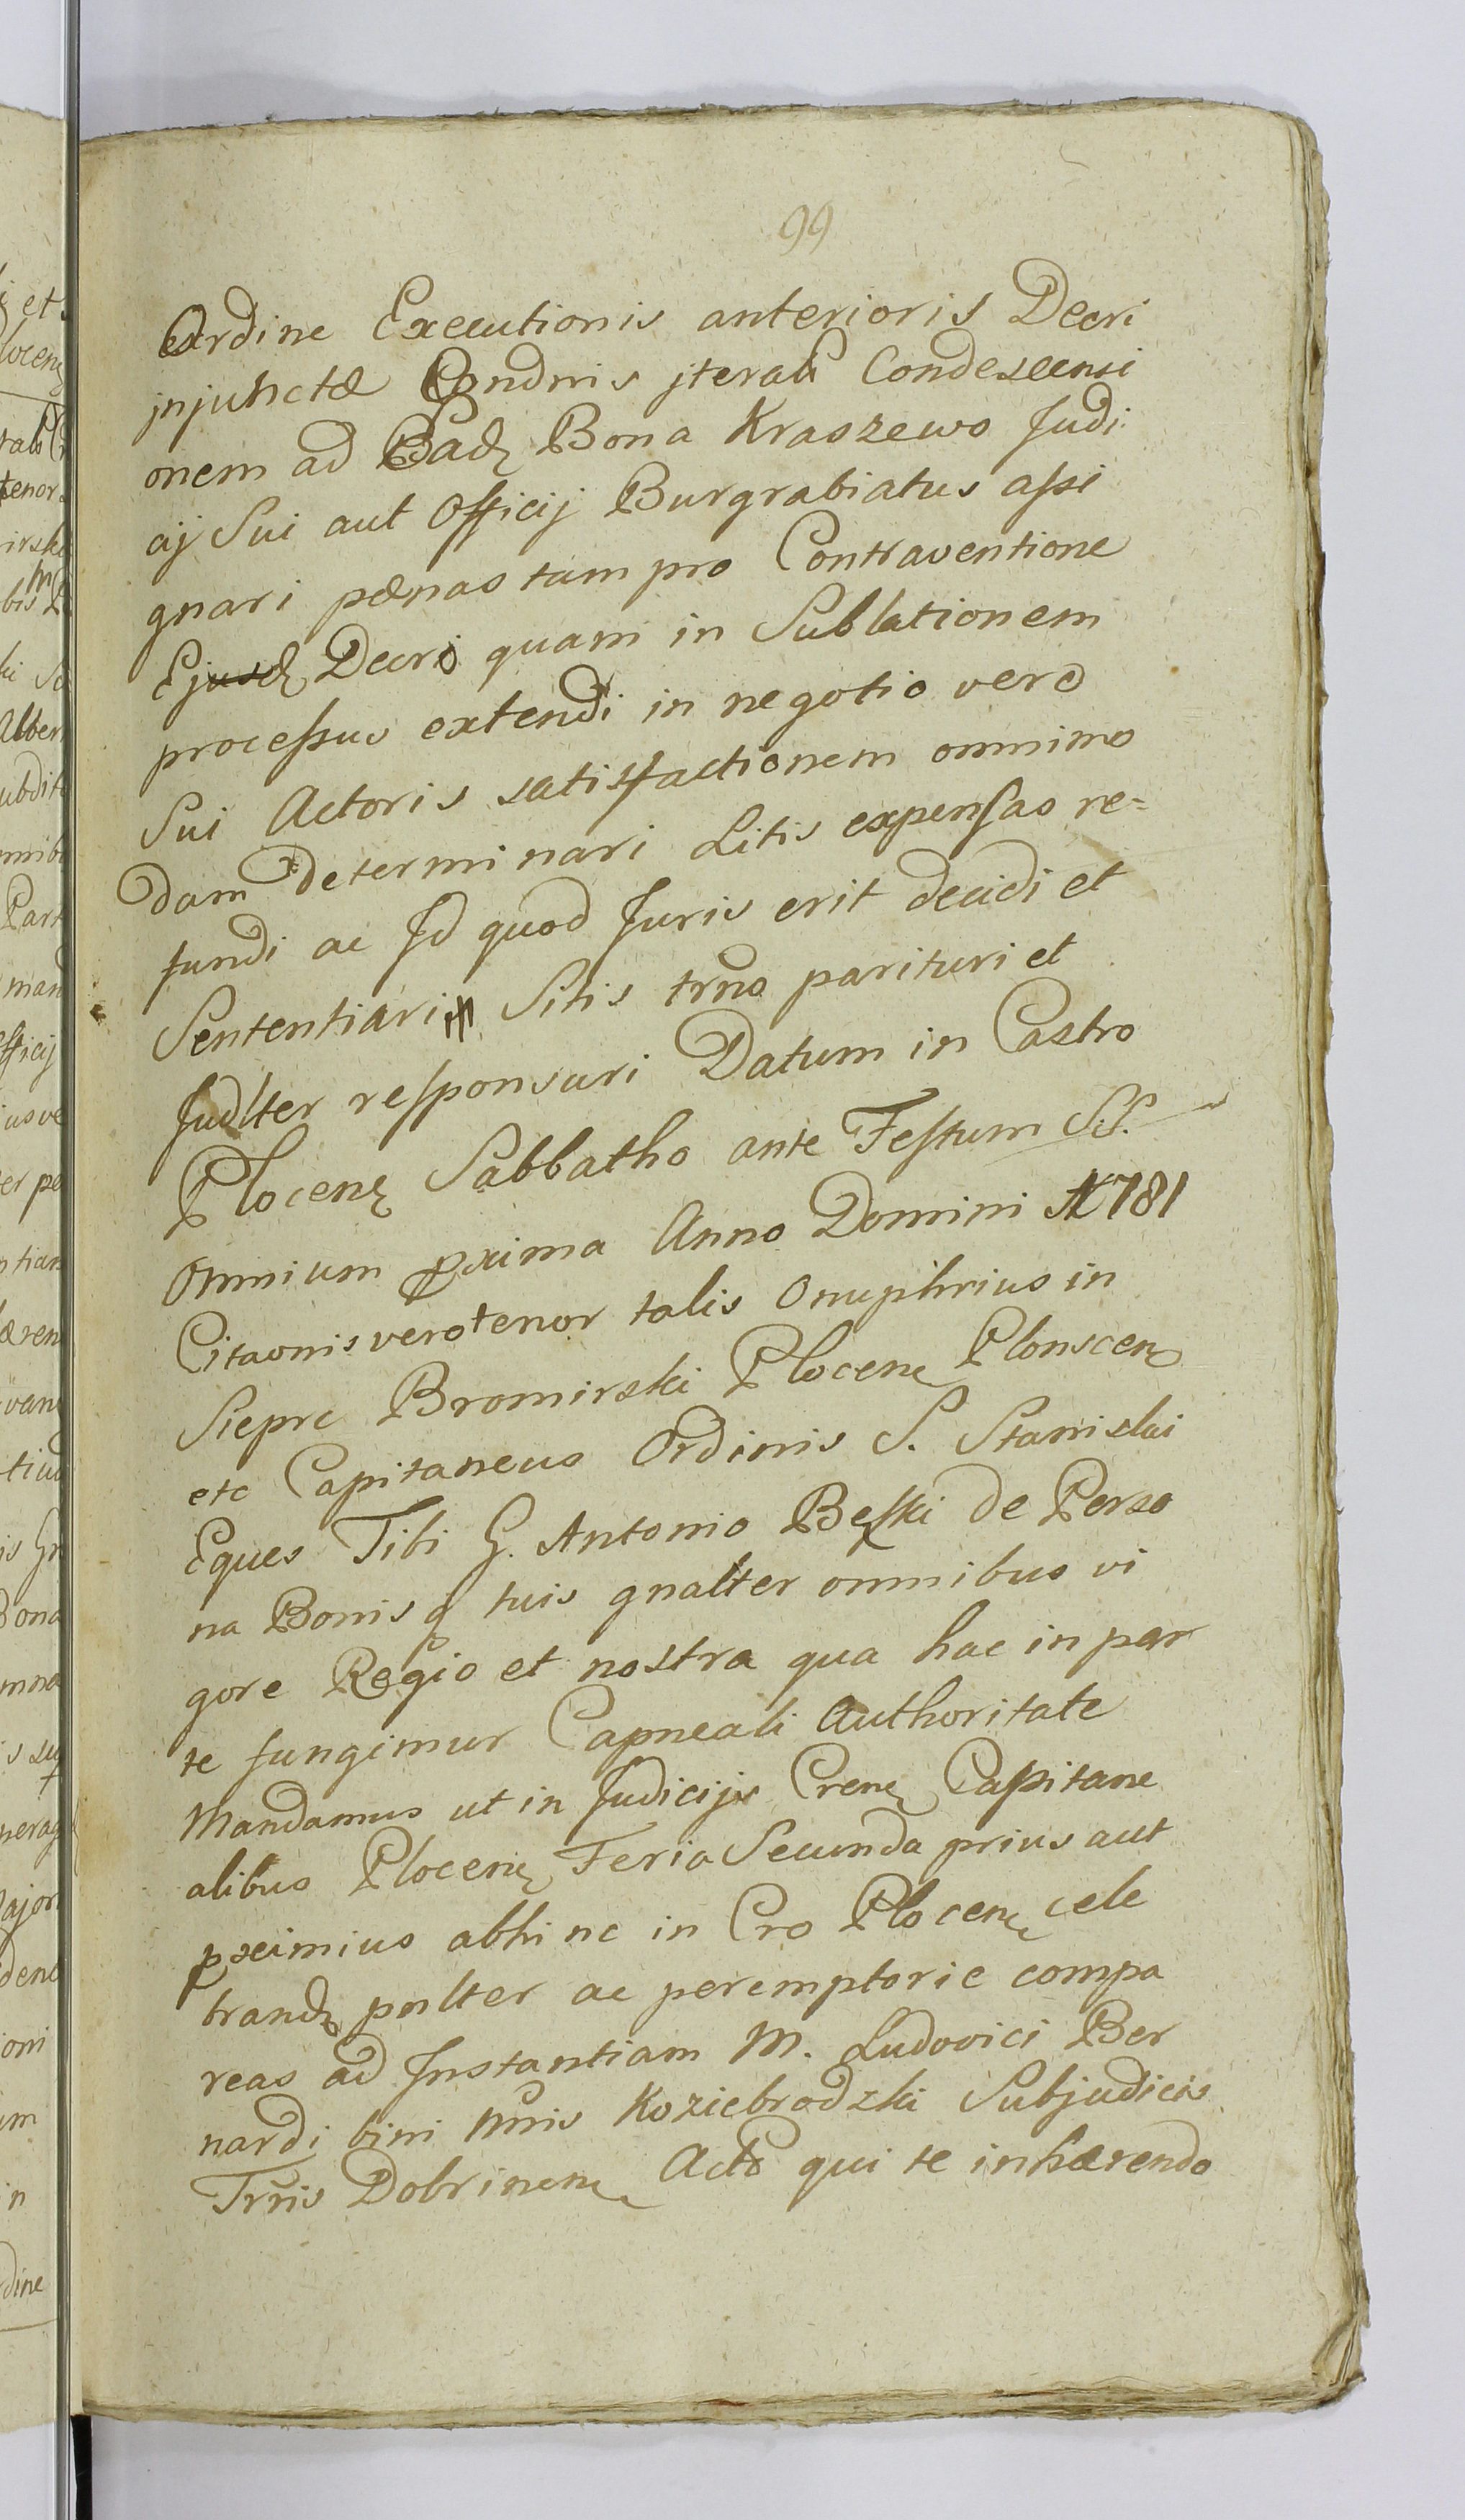 99
Ordine Executionis anterioris Decri
injunctæ Condnis jterab Condescensi
onem ad Ead Bona Kraszewo Judi
cij Sui aut Officij Burgrabiatus assi
gnari pænas tam pro Contraventione
Ejusd Decri quam in Sublationem
processus extendi in negotio vero
Sui Actoris satisfactionem omnimo
dam determinari Litis expensas re=
fundi ac Id quod Juris erit decidi et
Sententiari Sitis trno parituri et
Judlter responsuri Datum in Castro
Plocen Sabbatho ante Festum SS.
Omnium pxima Anno Domini 1781
Citaonis vero tenor talis Onuphrius in
Siepre Bromirski Plocen Plonscen
etc Capitaneus Ordinis S. Stanislai
Eques Tibi G. Antonio Beski de Perzo
na Bonis q tuis gnalter omnibus vi
gore Regio et nostra qua hac in par
te fungimur Capneali Authoritate
Mandamus ut in Judicijs Cren Capitane
alibus Plocen Feria Secunda prius aut
pximius abhinc in Cro Plocen cele
brand pnlter ac peremptorie compa
reas ad Instantiam M. Ludovici Ber
nardi bini nnis Koziebrodzki Subjudicis
Trnis Dobrinen Acto qui te inhærendo